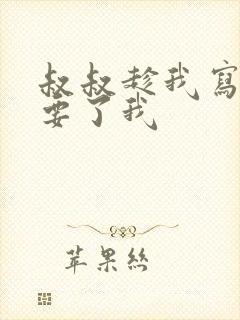 叔叔趁我寫
要了我
苹果丝